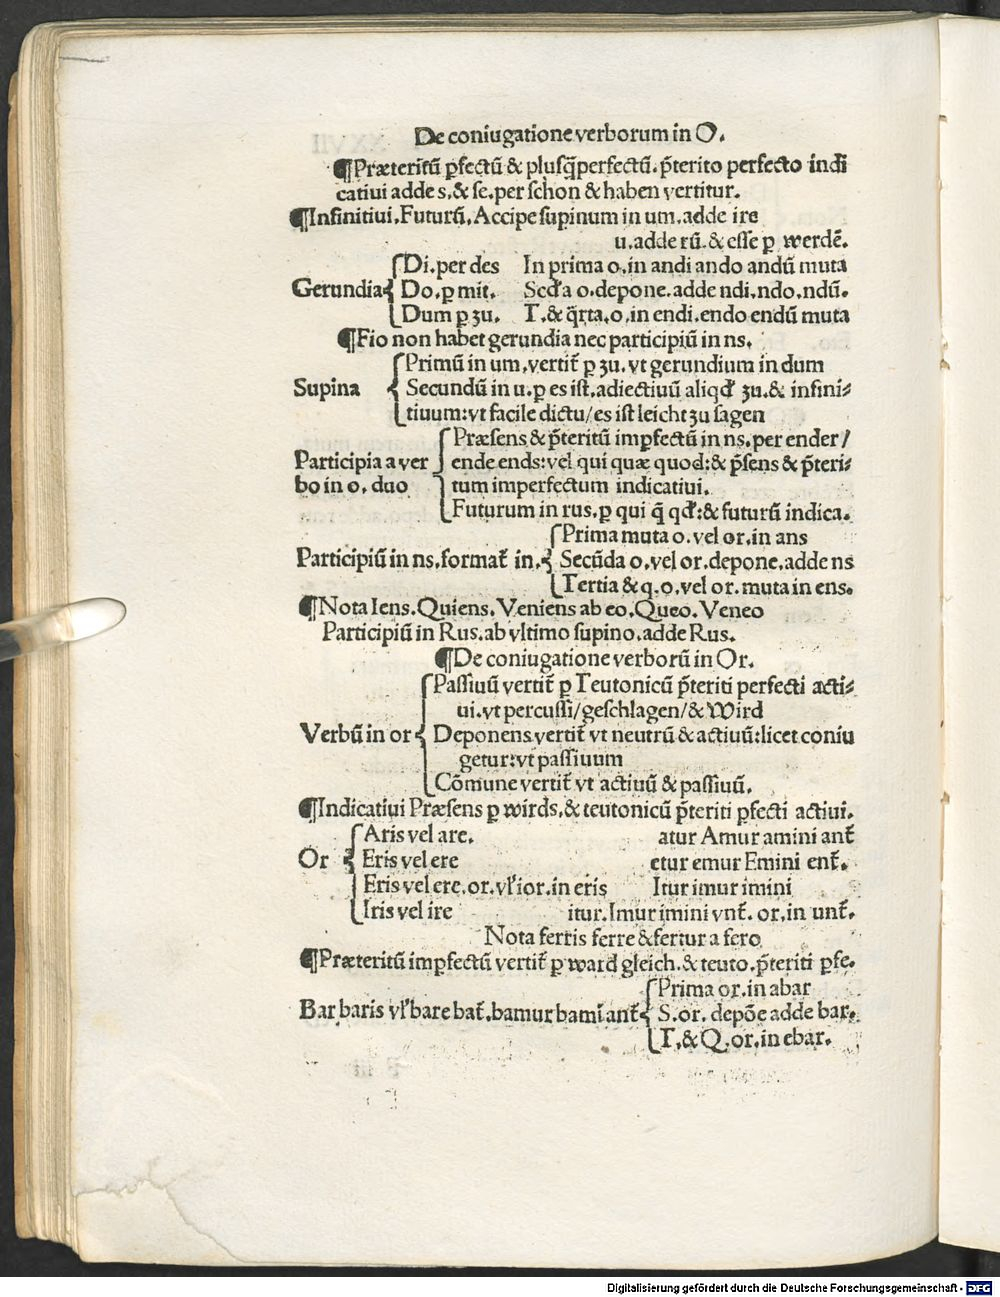 De coniugatione verborum in O.
¶Præteritũ ꝑfectũ & plusq̃perfectũ. p̃terito perfecto indi
catiui adde s. & se. per schon & haben vertitur.
¶Infinitiui. Futurũ. Accipe supinum in um. adde ire
u. adde rũ. & esse ꝑ werdẽ.
Di. per des In prima o. in andi ando andũ muta
Gerundia Do. ꝑ mit. Scđa o. depone. adde ndi. ndo. ndũ.
Dum ꝑ zu. T. & q̃rta. o. in endi. endo endũ muta
¶Fio non habet gerundia nec participiũ in ns.
Primũ in um. vertit̃ ꝑ zu. vt gerundium in dum
Supina Secundũ in u. ꝑ es ist. adiectiuũ aliqđ zu. & infini⸗
tiuum: vt facile dictu/es ist leicht zu sagen
Præsens & p̃teritũ imꝑfectũ in ns. per ender/
Participia a ver ende ends: vel qui quæ quod: & p̃sens & p̃teri⸗
bo in o. duo tum imperfectum indicatiui.
Futurum in rus. ꝑ qui q̃ qđ: & futurũ indica.
Prima muta o. vel or. in ans
Participiũ in ns. format̃ in. Secũda o. vel or. depone. adde ns
Tertia & q. o. vel or. muta in ens.
¶Nota Iens. Quiens. Veniens ab eo. Queo. Veneo
Participiũ in Rus. ab vltimo supino. adde Rus.
¶De coniugatione verborũ in Or.
Passiuũ vertit̃ ꝑ Teutonicũ p̃teriti perfecti acti⸗
ui. vt percussi/geschlagen/& Wird
Verbũ in or Deponens vertit̃ vt neutrũ & actiuũ: licet coniu
getur: vt passiuum
Cõmune vertit̃ vt actiuũ & passiuũ.
¶Indicatiui Præsens ꝑ wirds. & teutonicũ p̃teriti ꝑfecti actiui.
Aris vel are. atur Amur amini ant̃
Or Eris vel ere etur emur Emini ent̃.
Eris vel ere. or. vl̕ ior. in eris Itur imur imini
Iris vel ire itur. Imur imini vnt̃. or. in unt̃.
Nota ferris ferre & fertur a fero
¶Præteritũ imꝑfectũ vertit̃ ꝑ ward gleich. & teuto. p̃teriti ꝑfe.
Prima or. in abar
Bar baris vl̕ bare bat̃. bamur bamĩ ant̃ S. or. depõe adde bar.
T. & Q. or. in ebar.
Digitalisierung gefördert durch die Deutsche Forschungsgemeinschaft - DFG